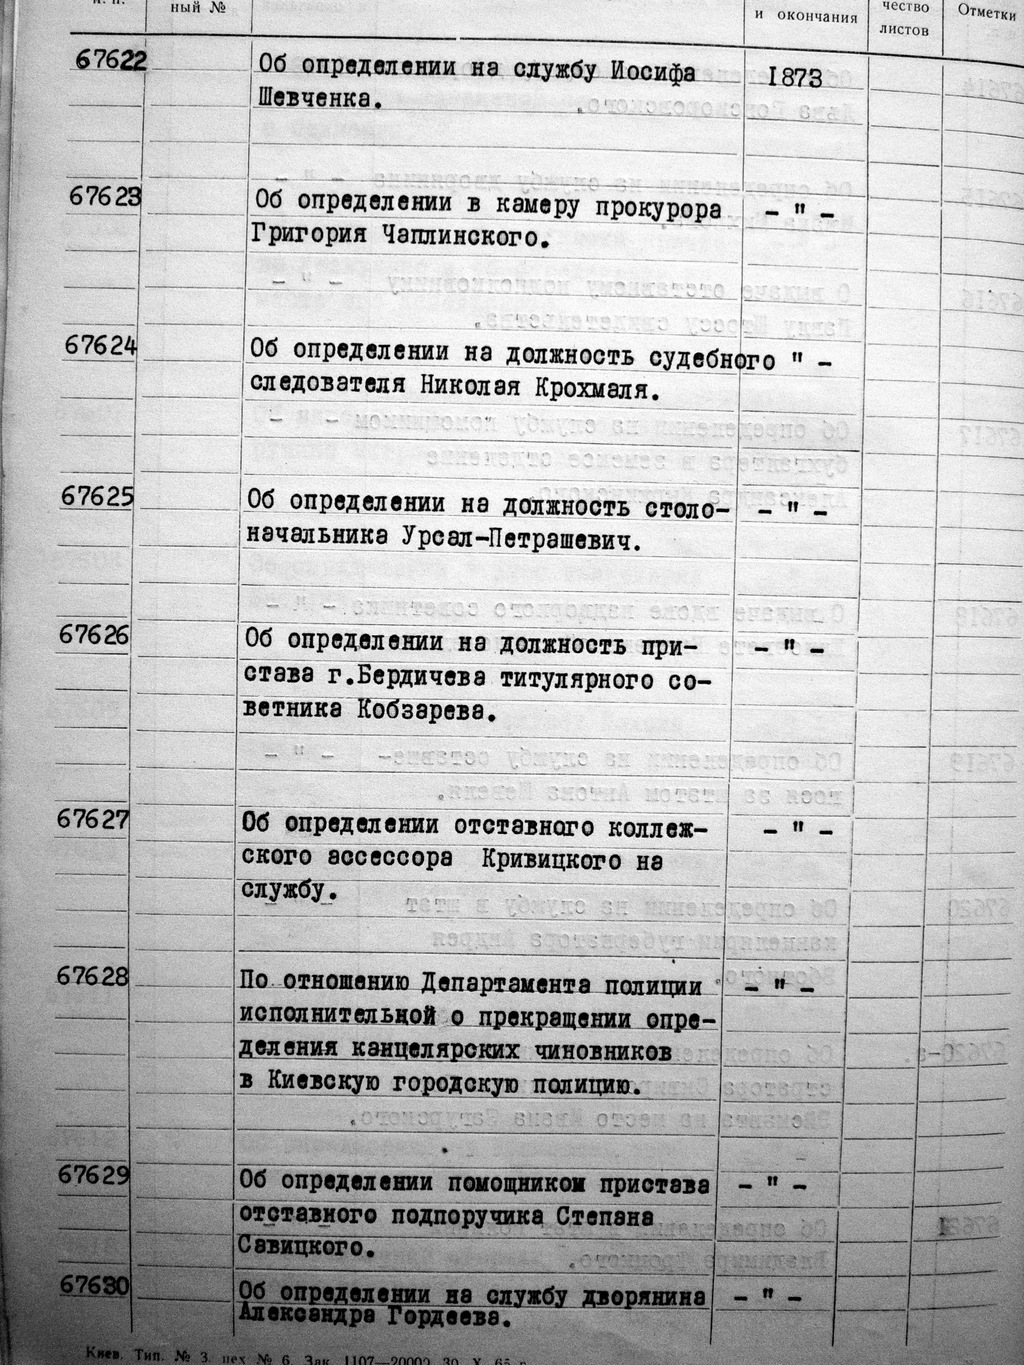 ный №
и окончания
чество
листов
Отметки
67622 Об определении на службу Иосифа 1873
Шевченка.
67623 Об определении в камеру прокурора - " -
Григория Чаплинского.
67624 Об определении на должность судебного " -
следователя Николая Крохмаля.
67625 Об определении на должность столо- - " -
начальника Урсал-Петрашевич.
67626 Об определении на должность при- - " -
става г.Бердичева титулярного со-
ветника Кобзарева.
67627 Об определении отставного коллеж- - " -
ского ассессора Кривицкого на
службу.
67628 По отношению Департамента полиции - " -
исполнительной о прекращении опре-
деления канцелярских чиновников
в Киевскую городскую полицию.
67629 Об определении помощником пристава - " -
отставного подпоручика Степана
Савицкого.
67630 Об определении на службу дворянина - " -
Александра Гордеева.
Киев. Тип. № 3, цех № 6. Зак. 1107—20000 30. X. 65 г.